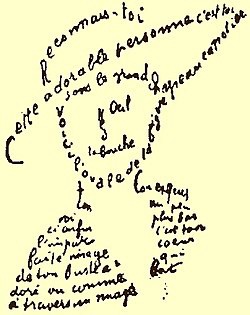 Reconnais-toi
Cette adorable personne c'est toi
Sous le grand chapeau canotier
Oeil
Nez
la bouche
Voici l'ovale de ta figure
Ton
Cou exquis
voi
ci enfin
l'impar
faite image
de ton buste a
doré vu comme
à travers un nuage
un peu
plus bas
c'est ton
coeur
qui
bat